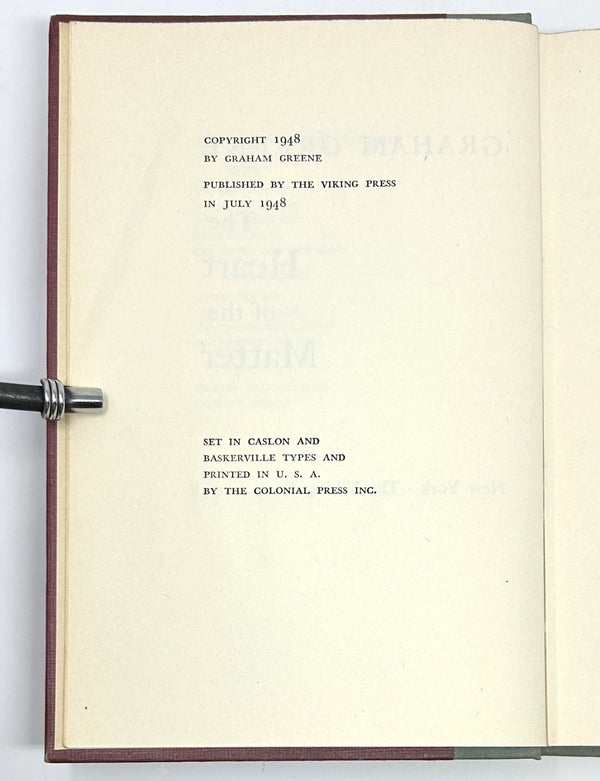 COPYRIGHT 1948
BY GRAHAM GREENE
PUBLISHED BY THE VIKING PRESS
IN JULY 1948
SET IN CASLON AND
BASKERVILLE TYPES AND
PRINTED IN U. S. A.
BY THE COLONIAL PRESS INC.